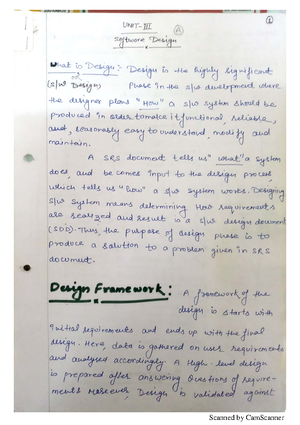 UNIT-III
A
1
Software Design
What is Design:- Design is the highly significant
or
(S/w Design) Phase in the s/w development where
the designer plans "HOW" a s/w system should be
produced in order to make it functional, reliable,
and, reasonably easy to understand, modify and
maintain.
A SRS document tells us "what" a system
does, and be comes input to the design process,
which tells us "how" a s/w system works. Designing
s/w system means determining How requirements
are realized and result is a s/w design document
(SDD). Thus, the purpose of design phase is to
produce a solution to a problem given in SRS
document.
Design Framework:
A framework of the
design is starts with
initial requirements and ends up with the final
design. Here, data is gathered on user requirements
and analysed accordingly. A high-level design
is prepared after answering Questions of require-
ments. Moreover, Design is validated against
Scanned by CamScanner